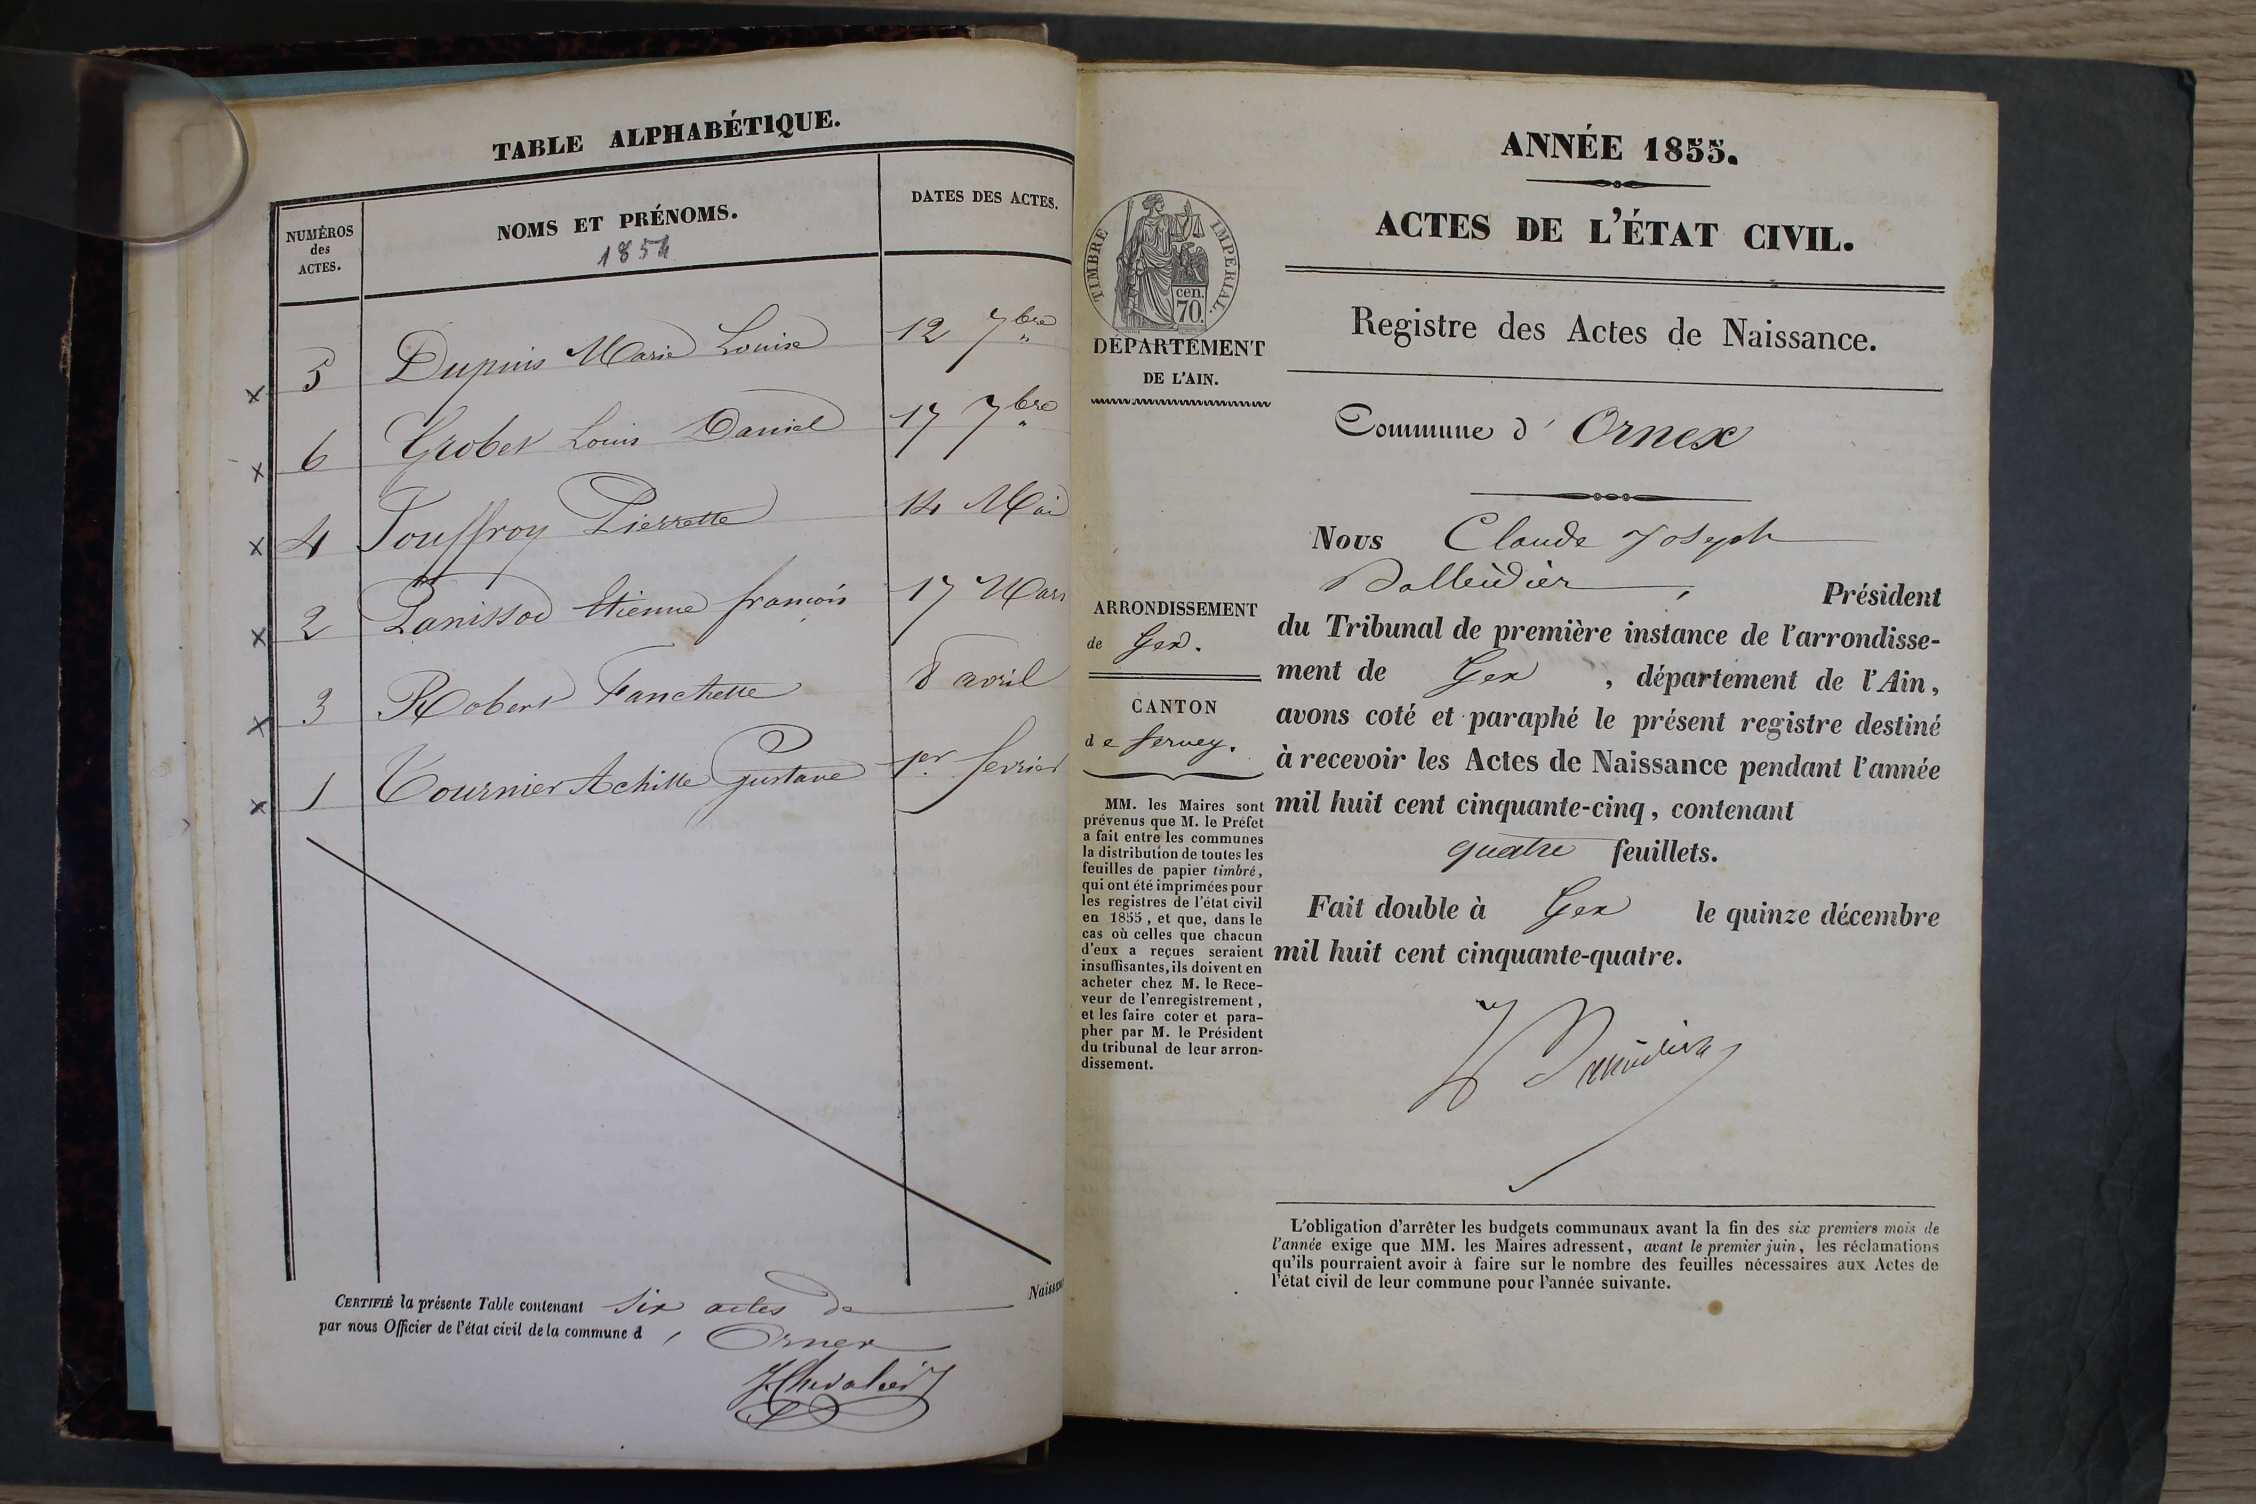 TABLE ALPHABÉTIQUE.
NUMÉROS
des
ACTES.
NOMS ET PRÉNOMS.
1854
DATES DES ACTES.
x 5 Dupuis Marie Louise 12 7bre "
x 6 Grobet Louis Daniel 17 7bre "
x 4 Jouffroy Pierrette 14 Mai
x 2 Panissod Etienne françois 17 Mars
x 3 Robert Fanchette 8 avril
x 1 Tournier Achille Gustave 1er fevrier
Naissan
CERTIFIÉ la présente Table contenant six actes de
par nous Officier de l'état civil de la commune d' Ornex
J Chevalier
ANNÉE 1855.
ACTES DE L'ÉTAT CIVIL.
Registre des Actes de Naissance.
TIMBRE IMPERIAL.
cen.
70.
DÉPARTEMENT
DE L'AIN.
Commune d' Ornex
ARRONDISSEMENT
de Gex.
CANTON
de ferney.
MM. les Maires sont
prévenus que M. le Préfet
a fait entre les communes
la distribution de toutes les
feuilles de papier timbré,
qui ont été imprimées pour
les registres de l'état civil
en 1855, et que, dans le
cas où celles que chacun
d'eux a reçues seraient
insuffisantes, ils doivent en
acheter chez M. le Rece-
veur de l'enregistrement,
et les faire coter et para-
pher par M. le Président
du tribunal de leur arron-
dissement.
Nous Claude Joseph
, Président
du Tribunal de première instance de l'arrondisse-
ment de Gex , département de l'Ain,
avons coté et paraphé le présent registre destiné
à recevoir les Actes de Naissance pendant l'année
mil huit cent cinquante-cinq, contenant
quatre feuillets.
Fait double à Gex le quinze décembre
mil huit cent cinquante-quatre.
L'obligation d'arrêter les budgets communaux avant la fin des six premiers mois de
l'année exige que MM. les Maires adressent, avant le premier juin, les réclamations
qu'ils pourraient avoir à faire sur le nombre des feuilles nécessaires aux Actes de
l'état civil de leur commune pour l'année suivante.